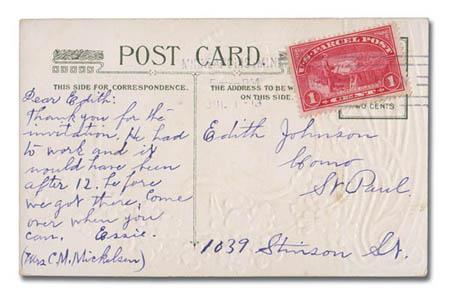 POST CARD
THIS SIDE FOR CORRESPONDENCE.
THE ADDRESS TO BE
ON THIS SIDE.
U.S. PARCEL POST
1 CENT 1
CENTS
Dear Edith:
Thank you for the
invitation. He had
to work and it
would have been
after 12. before
we got there, Come
over when you
can. Essie.
(Mrs C. M. Mickelsen)
Edith Johnson
Como
St Paul.
1039 Stinson St.